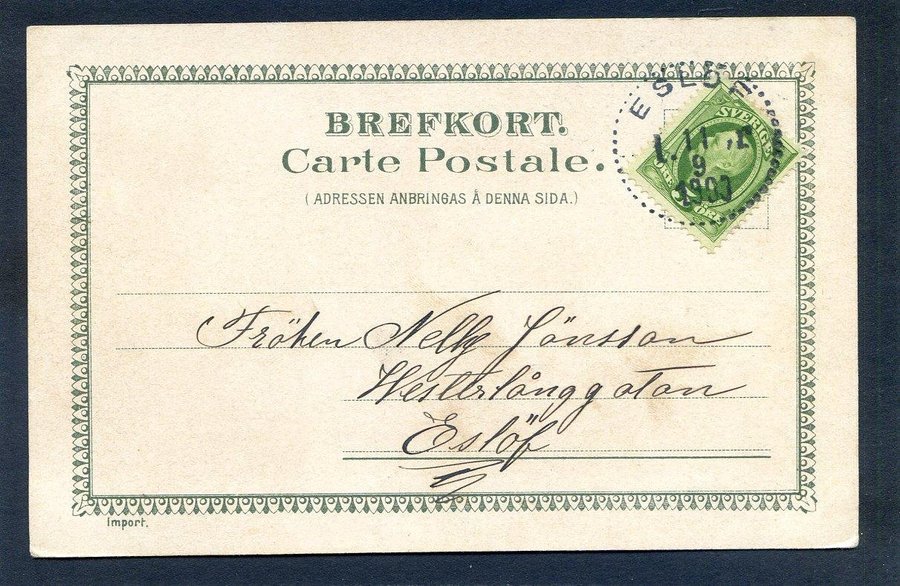 BREFKORT.
Carte Postale.
( ADRESSEN ANBRINGAS Å DENNA SIDA.)
SVERIGE
1. 11
9
1900
Fröken Nelly Jönsson
Westerlånggatan
Eslöf
Import.